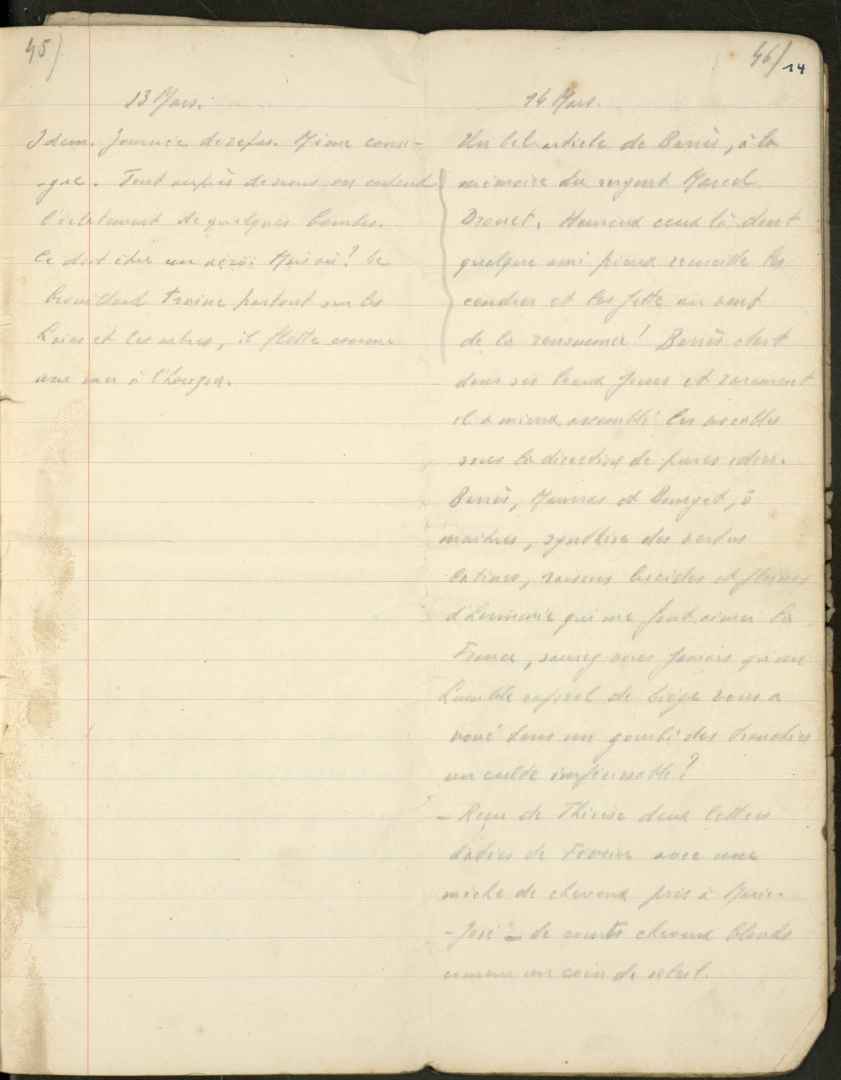 45)
13 Mars.
Idem. Journée de repos. Même consi-
-gne. Tout auprès de nous on entend
l'éclatement de quelques bombes.
Ce doit être un aéro. Mais où? Le
brouillard traîne partout sur les
bois et les arbres, il flotte comme
une mer à l'horizon.
46) 14
14 Mars.
Un bel article de Barrès, à la
mémoire du sergent Marcel
Drouet. Heureux ceux-là dont
quelque ami pieux recueille les
cendres et les jette au vent
de la renommée! Barrès était
dans ses beaux jours et rarement
il a mieux assemblé les vocables
sous la direction de pures idées.
Barrès, Maurras et Bourget, ô
maîtres, synthèse des vertus
latines, lucides et pleines
d'harmonie qui me font aimer la
France, saurez vous jamais qu'un
humble caporal de Liège vous a
voué dans un gourbi des tranchées
un culte impérissable?
- Reçu de Thérèse deux lettres
datées de Février avec une
mèche de cheveux pris à Marie-
-José - de courts cheveux blonds
comme un coin de soleil.